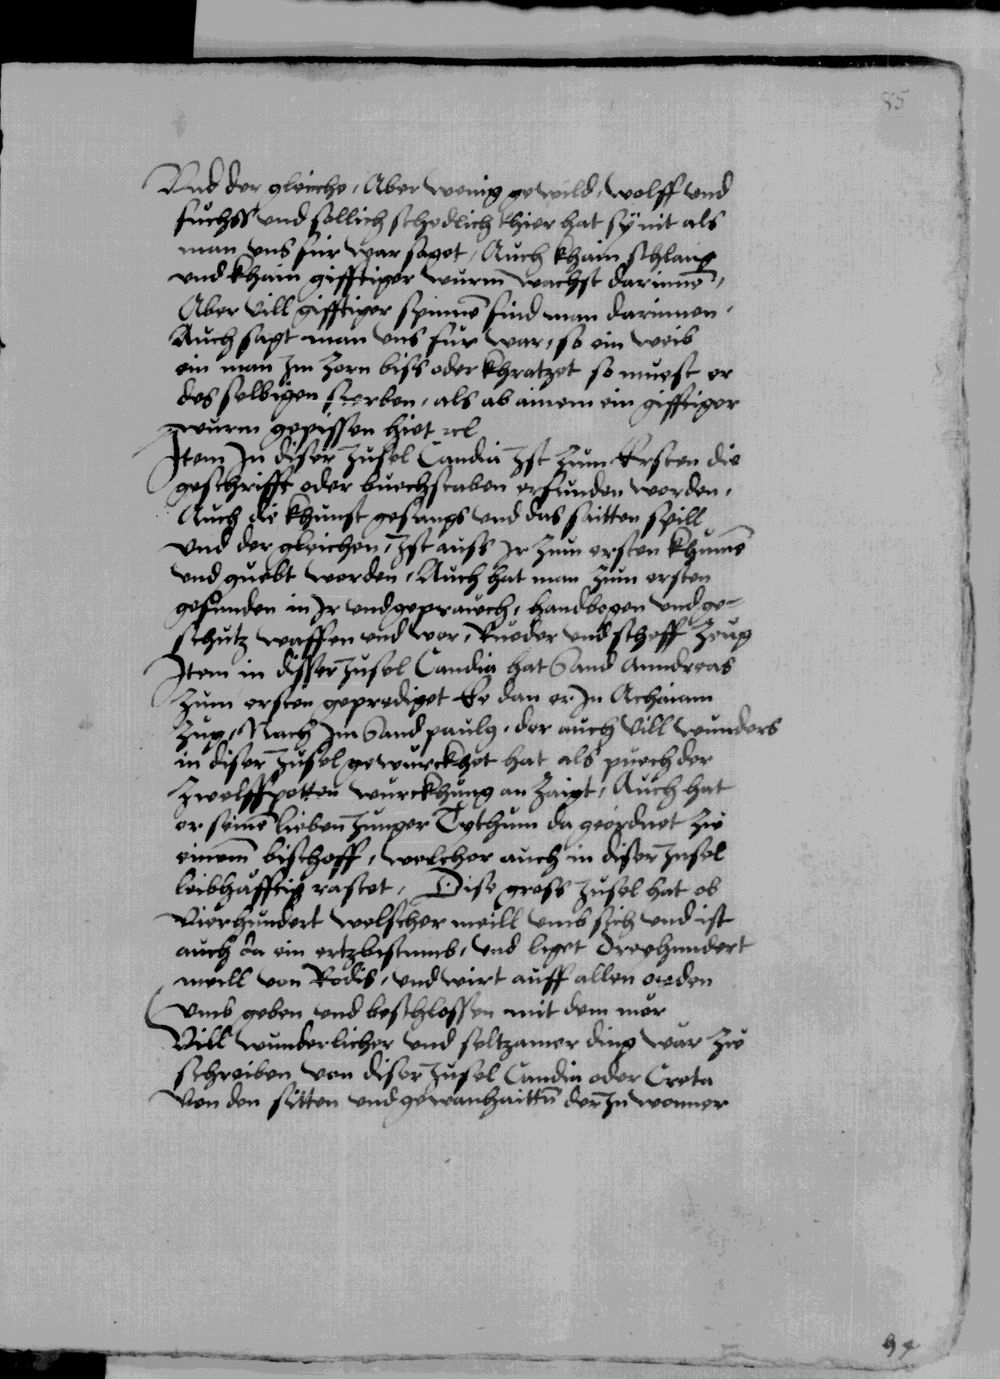 85
Vnd der gleiche, Aber wenig gewild, wolff vnd
fuchss vnd sollich schedlich thier hat sÿ nit als
man vns für war saget, Auch khain schlang
vnd khain gifftiger wurm wachst darinnē,
Aber vill gifftiger spinnē find man darinnen,
Auch sagt man vns fur war, so ein weib
ein man Im Zorn biss oder khratzet so muest er
des selbigen sterben, als ab ainem ein gifftiger
wurm gepissen hiet etc
Item In diser Insel Candia Ist zum Ersten die
geschrifft oder buechstaben erfunden worden,
Auch die khunst gesangs vnd das saitten spill
vnd der gleichen, Ist auss Ir zum ersten khumē
vnd guebt worden, Auch hat man zum ersten
gefunden in Ir vnd geprauch, handbogen vnd ge-
schutz waffen vnd wer, Rueder vnd scheff Zeug
Item in disser Insel Candia hat Sand Anndreas
zum ersten geprediget Ee dan er In Achaiam
Zug, Nach Im Sand paulg, der auch vill wunders
in diser Insel gewurckhet hat als puech der
Zwelffpotten wurckhung an Zaigt, Auch hat
er seinē lieben Junger Tythum da geordnet Zu
einem bischoff, welcher auch in diser Insel
leibhafftig rastet, Dise gross Insel hat ob
vierhundert welscher meill vmb sich vnd ist
auch da ein ertzbistumb, vnd liget dreyhundert
meill von Rodis, vnd wirt auff allen orden
vmb geben vnd beschlossen mit dem mer
Vill wunderlicher vnd seltzamer ding war Zu
schreiben von diser Insel Candia oder Creta
Von den sitten vnd gewanhaittn̄ der In wonner